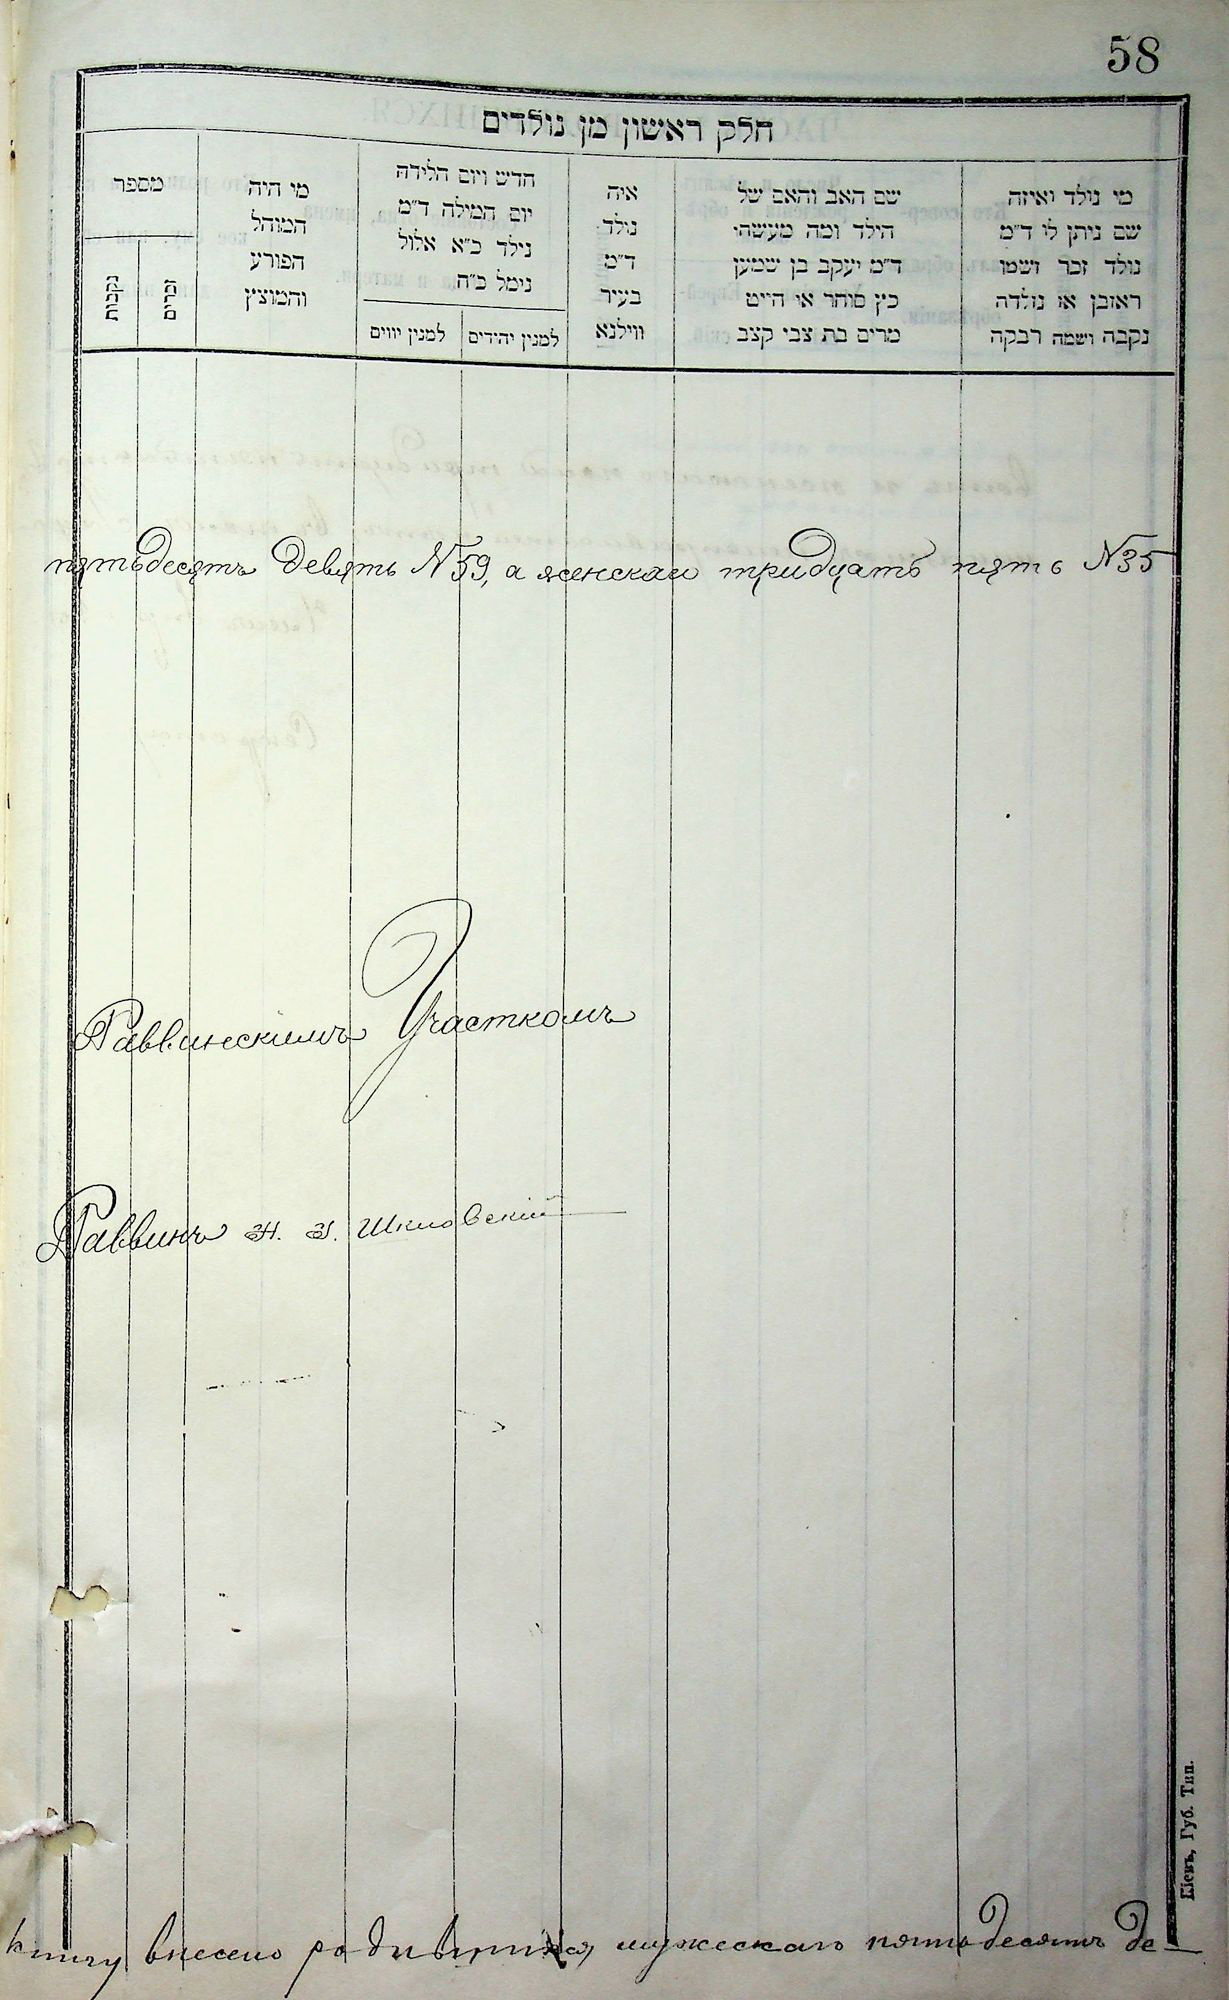 58
חלק ראשון מן נולדים
מי נולד ואיזה
שם ניתן לו ד״מ
נולד זכר ושמו
ראובן או נולדה
נקבה ושמה רבקה
שם האב והאם של
הילד ומה מעשהי
ד״מ יעקב בן שמען
כץ סוחר או הייט
מרים בת צבי קצב
איה
נולד
ד״מ
בעיר
ווילנא
חדש ויום הלידה
יום המילה ד״מ
נילד כ״א אלול
נימל כ״ח
למנין יהודים
למנין יווים
מי היה
המוהל
הפורע
והמוצץ
מספר
זכרים
נקבות
пятьдесятъ девять №59, а женскаи тридцать пять №35
Раввинскимъ Участкомъ
Раввинъ Шкловскій
Кіевъ, Губ. Тип.
книгу внесено родившихся мужескаго пятьдесятъ де-